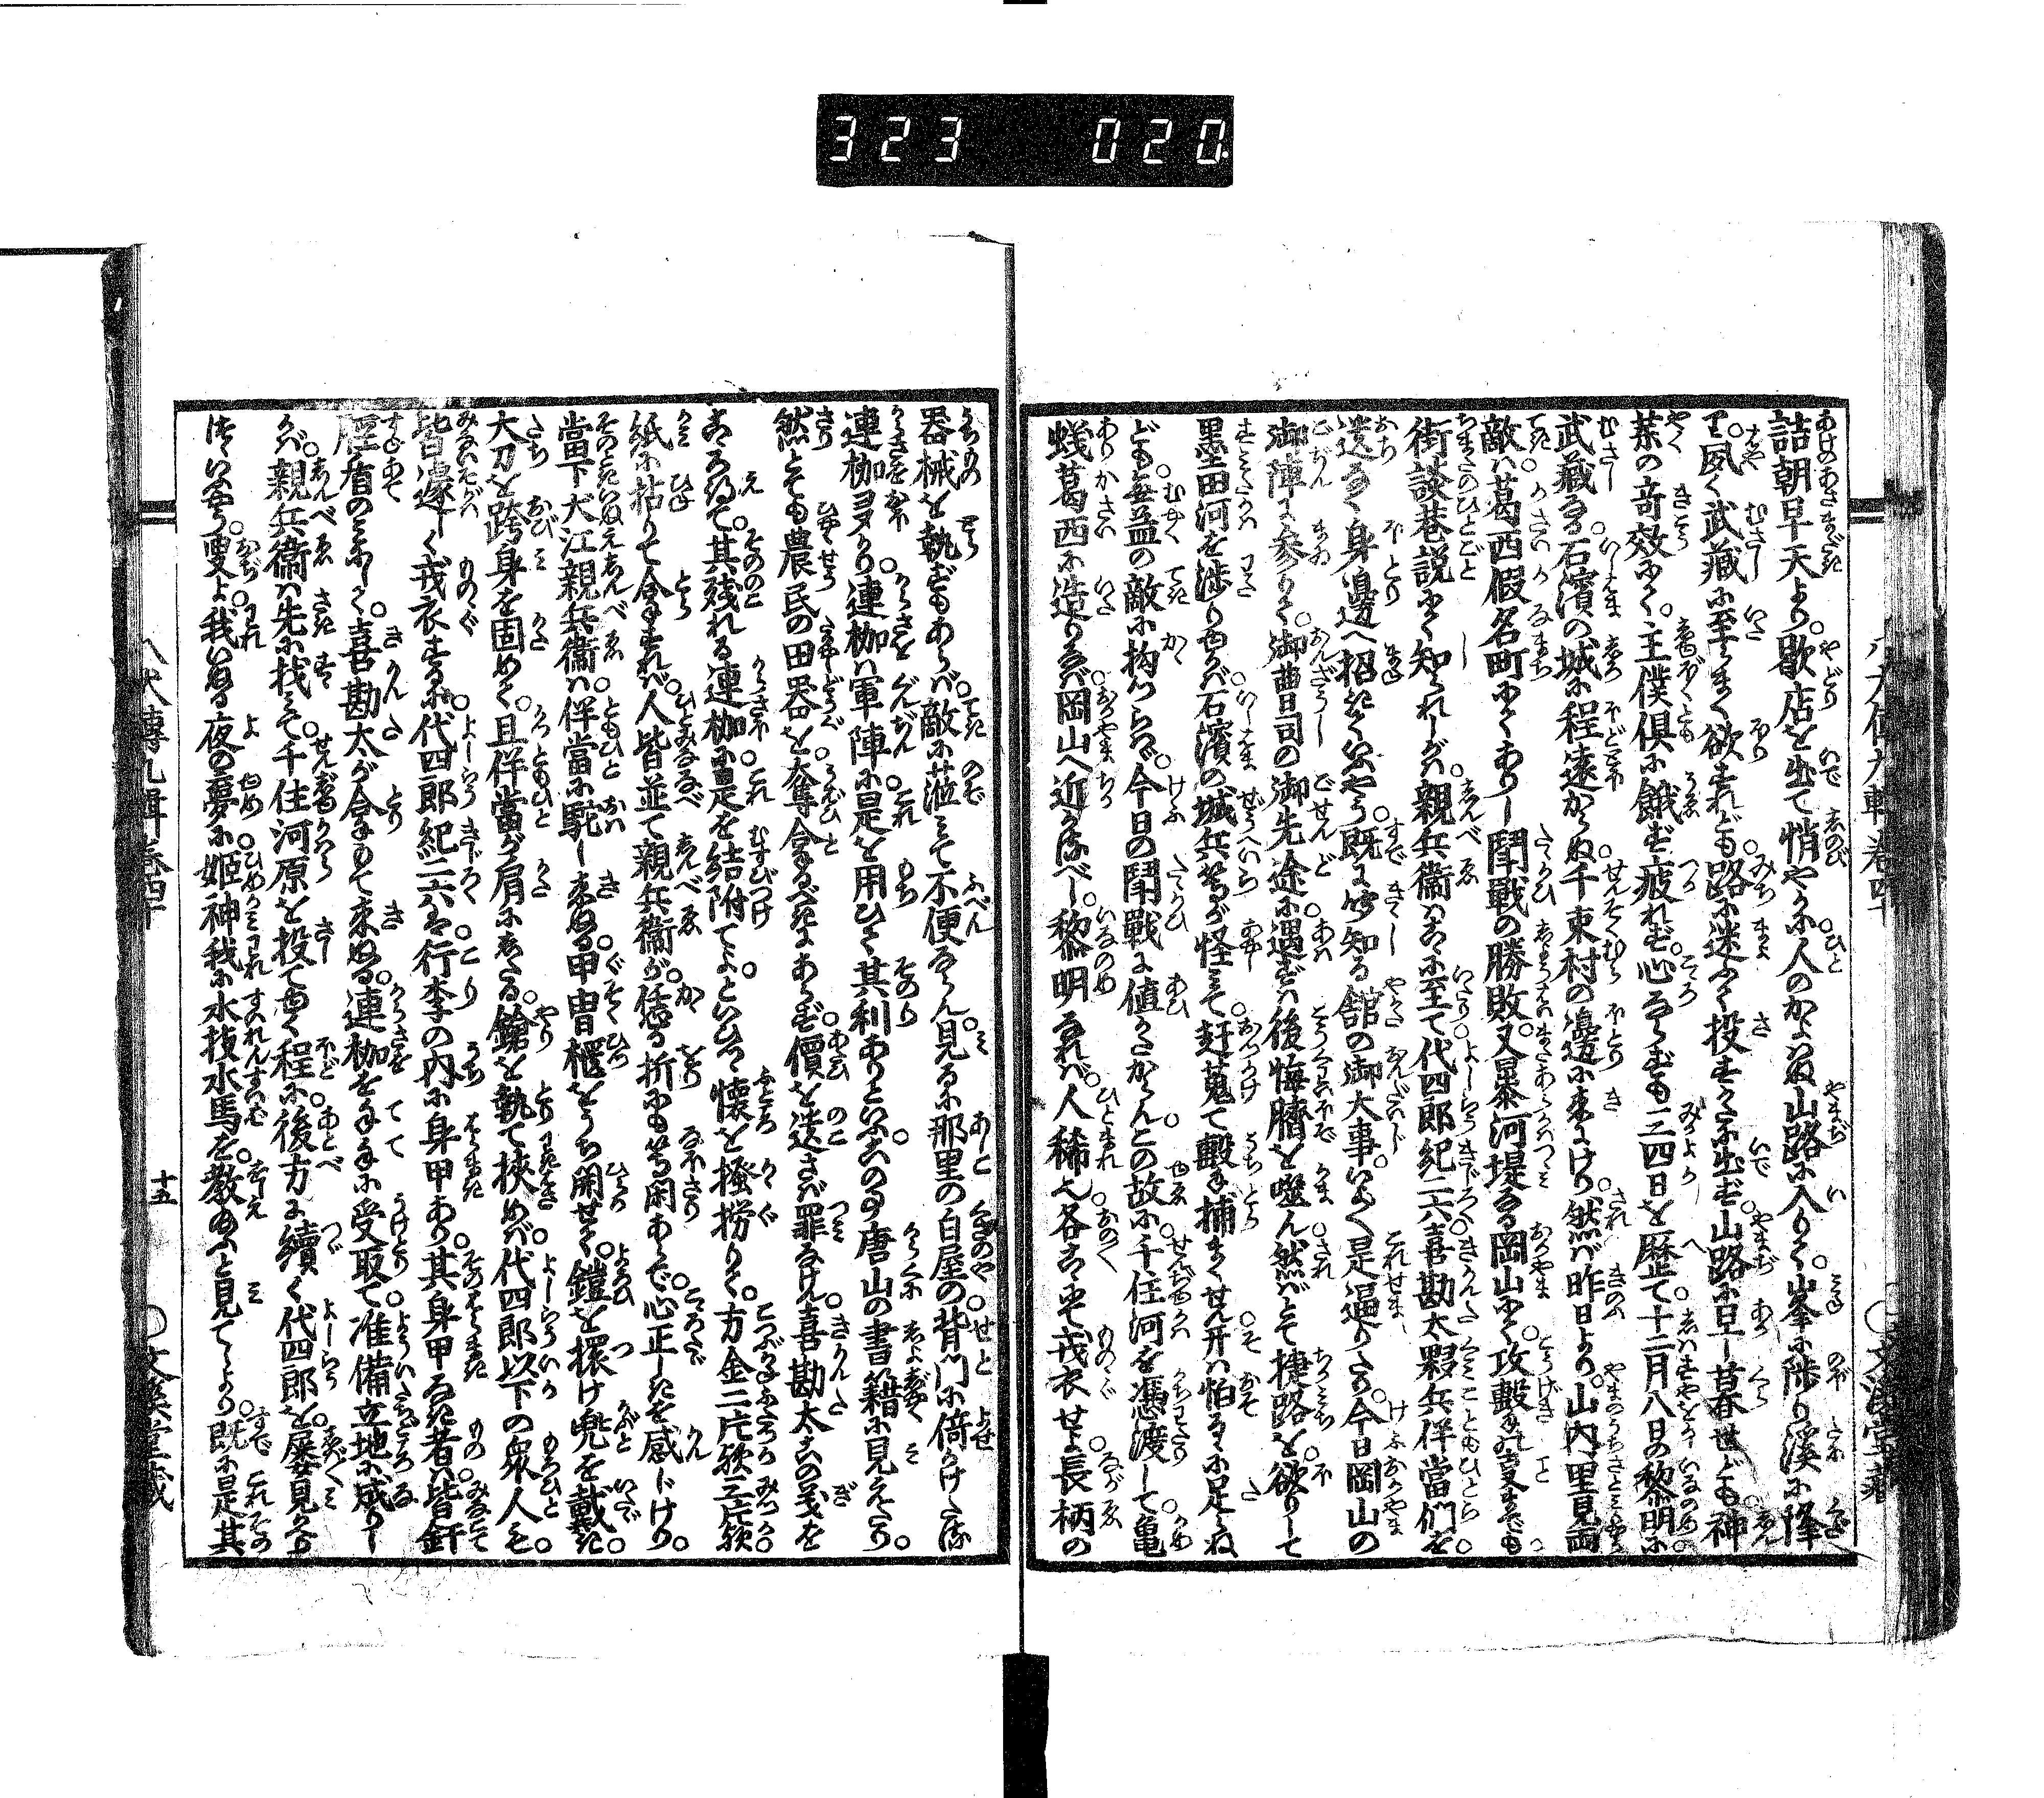 323 020
詰朝早天より。歇店を出て悄やかに人のかよはぬ山路に入りて。峯に陟り溪に降
り。夙く武藏に至らまく欲すれども。路に迷ふて投すかたに出ず。山路に早し昔春世ども。神
藥の竒效にて。主僕倶に餓ず疲れず。心ならずも三四日を歴て十二月八日の黎明に。
武藏なる。石濱の城に程遠からぬ千束村の邊に來にけり。然ば昨日より。山内里見両
敵は。葛西假名町にてありし鬪戰の勝敗。又暴河堤なる岡山にて。攻撃れし支までも。
街談巷説にて知られしが。親兵衞はこゝに至て代四郎紀二六。喜勘太夥兵伴當們を。
遺なく身邊へ招きていふやう。既に知る舘の御大事。いよゝ是逼りたり。今日岡山の
御陣に參りて。御曹司の御先途に遇ずは後悔臍を噬ん。然ばとて捷路を欲りして
墨田河を渉りゆかば。石濱の城兵等が怪みて。赶蒐て撃捕まくせん。开は怕るゝに足らね
ども。無益の敵に拘つらひて。今日の鬪戰に値かたからん。この故に。千住河を馮渡して。亀
蟻葛西に造りなば。岡山へ近かるべし。黎明なれば。人稀也。各こゝにて戎衣せよ。長柄の
器械を執ずもあらば。敵に莅みて不便ならん。見るに那里の白屋の背門に。倚かけたる
連枷多かり。連枷は軍陣に。是を用ひて其利ありといふ。この事唐山の書籍に見えたり。
然とても農民の田器を。奪合るべきにあらず。價を遺さば罪なけん。喜勘太この義を
こゝろ得て。其残れる連枷に。是を結附てよ。といひつゝ懷を掻撈りて。方金二片歟三片歟。
紙に拈りて合すれば。人皆並て親兵衞が。恁る折にも等閑あらで。心正しきを感じけり。
當下犬江親兵衞は。伴當に駝し來ぬる甲冑櫃をうち開せて。鎧を擐け兜を戴き。
大刀を跨身を固めて。且伴當が肩にしたる。鎗を執て挾めば。代四郎以下の衆人も。
皆遽しく戎衣するに。代四郎紀二六は。行李の内に身甲あり。其身甲なき者は。皆釬
脛盾のみにして。喜勘太が合もて來ぬる。連枷を手に手に受取て。准備立地に成りし
かば。親兵衞は先に找みて。千住河原を投てゆく程に。後方に續く代四郎を。屡見かへり
つゝいふやう。叟よ。我いぬる夜の夢に。姫神我に水拔水馬を。教給ふと見てしより。既に是其
八犬傳九輯卷四十
十五
文溪堂藏